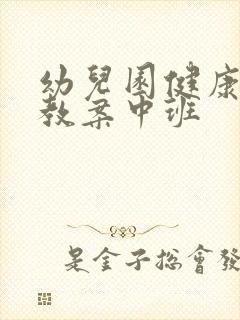 幼兒園健康
教案中班
是金子總會發